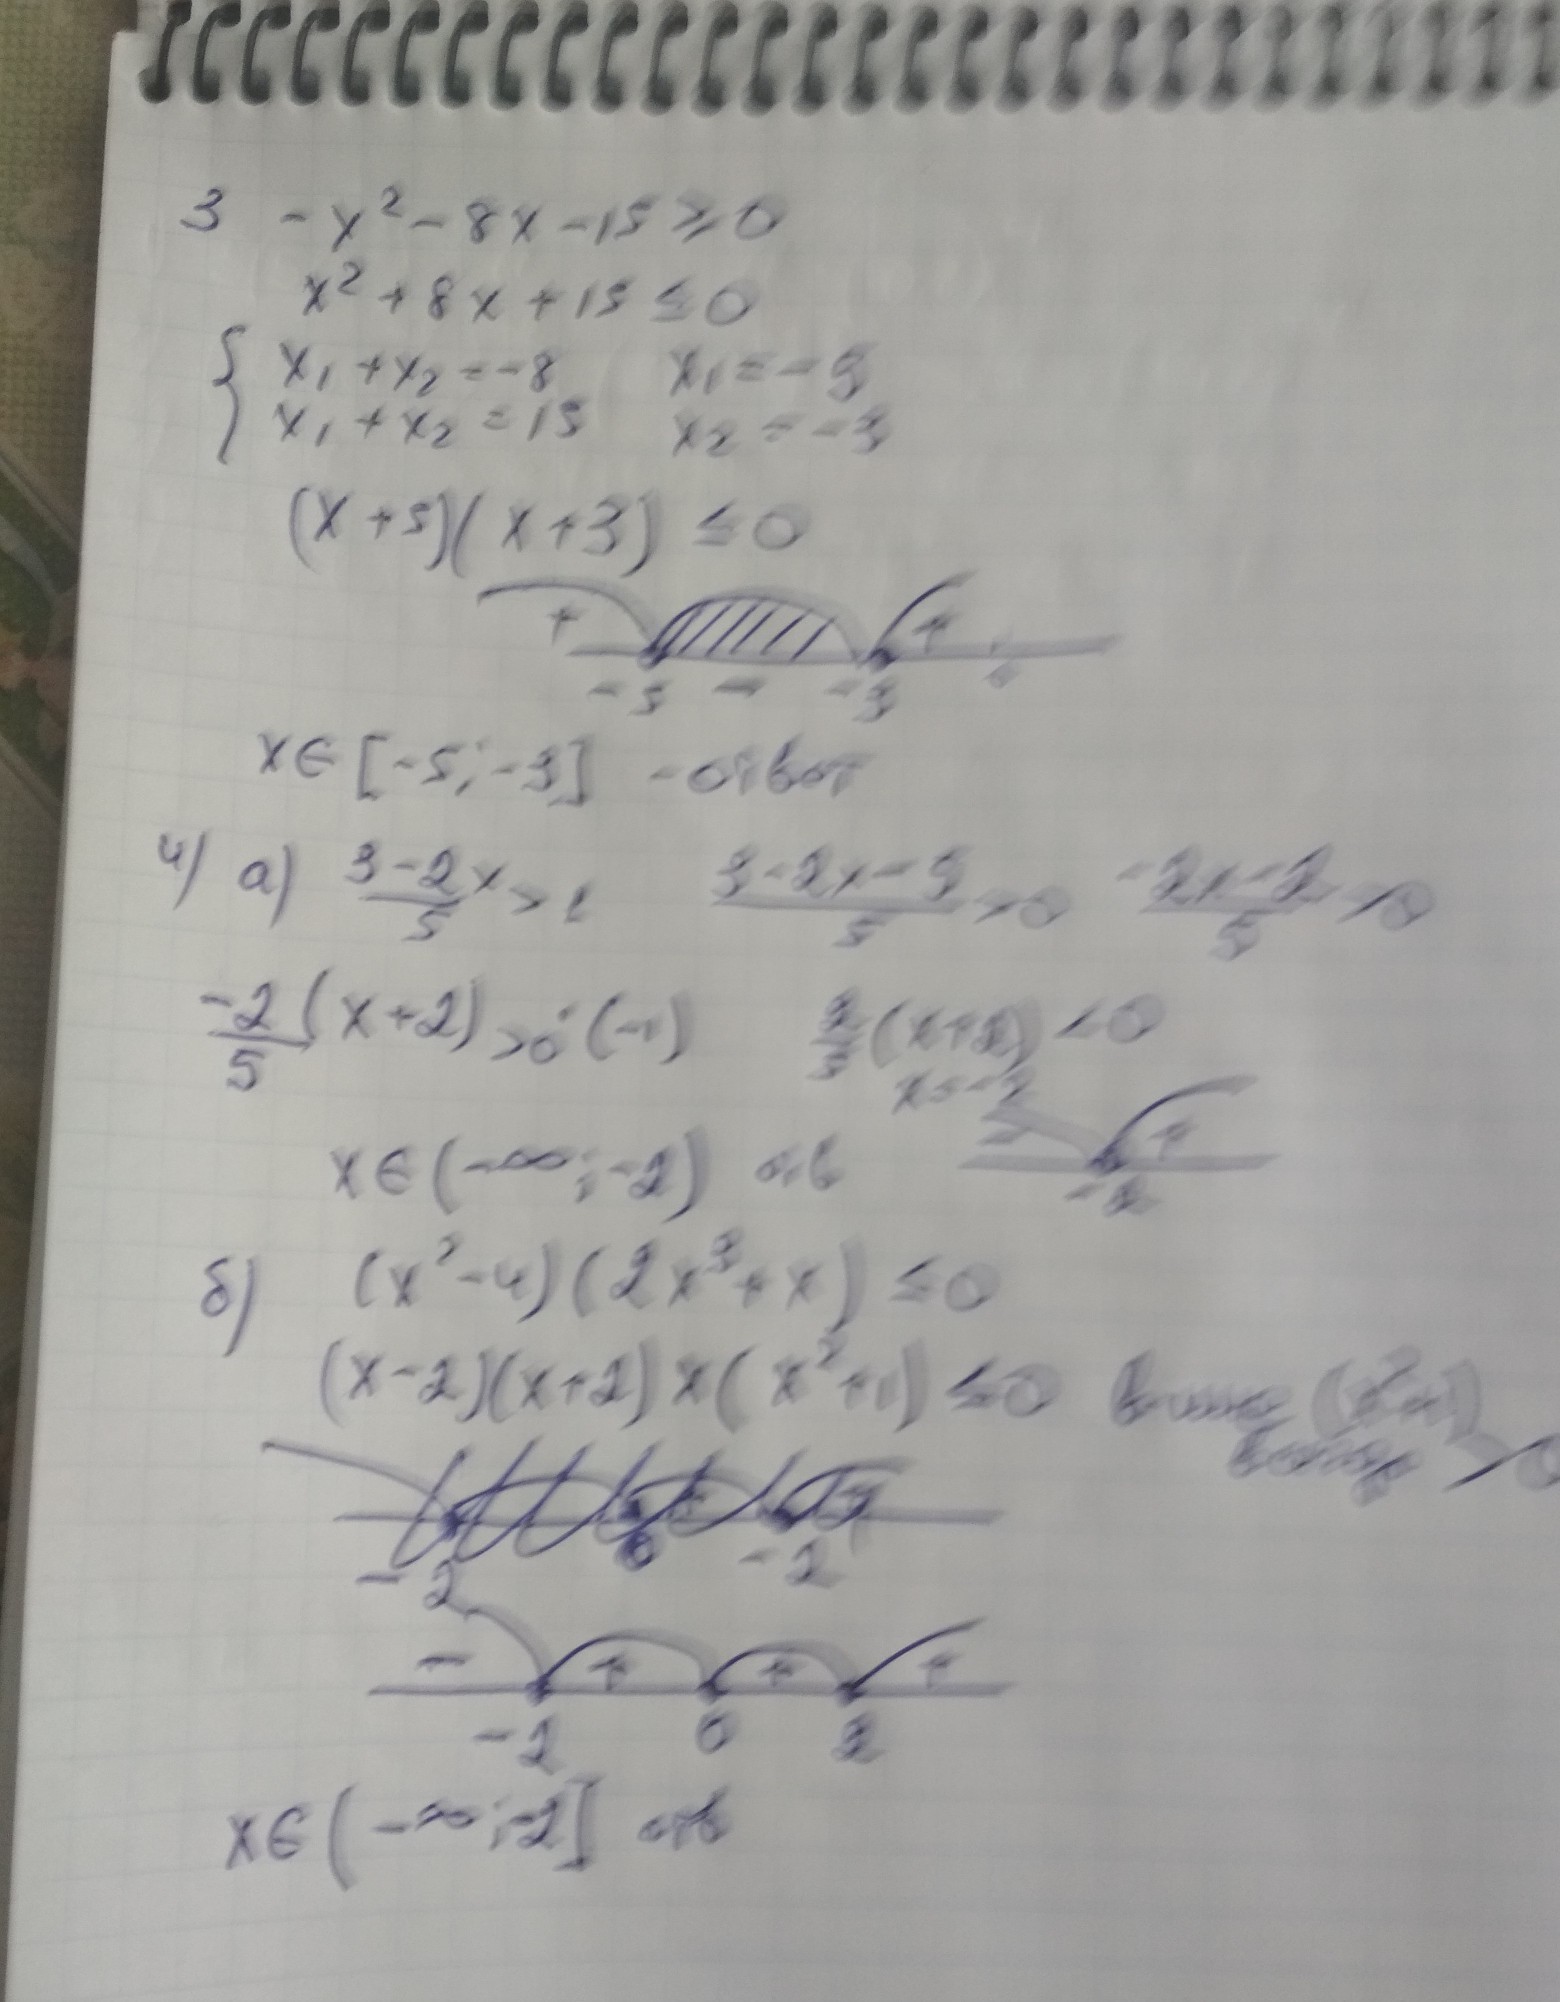 3 -x² - 8x - 15 ≥ 0
x² + 8x + 15 ≤ 0
{ x₁ + x₂ = -8 x₁ = -5
x₁ + x₂ = 15 x₂ = -3
(x + 5)(x + 3) ≤ 0
+ +
-5 - -3
x ∈ [-5; -3] - ответ
4) а) 3-2x/5 > 1 3-2x-5/5 > 0 -2x-2/5 > 0
-2/5 (x+2) > 0 · (-1) 2/5 (x+2) < 0
x = -2
- +
x ∈ (-∞; -2) отв -2
б) (x² - 4)(2x³ + x) ≤ 0
(x-2)(x+2) x (x² + 1) ≤ 0 (x²+1) > 0
0 -2
-2
- + + +
-2 0 2
x ∈ (-∞; -2] отв